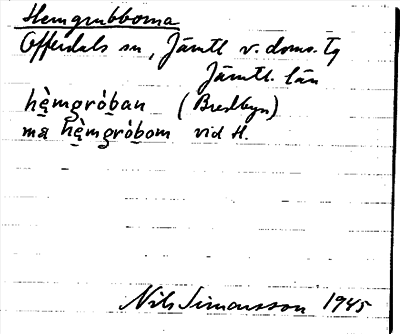 Hemgrubborna
Offerdals sn, Jämtl v. doms. tg
Jämtl. län
hè̱mgróban (Bredbyn)
mą hè̱mgróbom vid H.
Nils Simonsson 1945